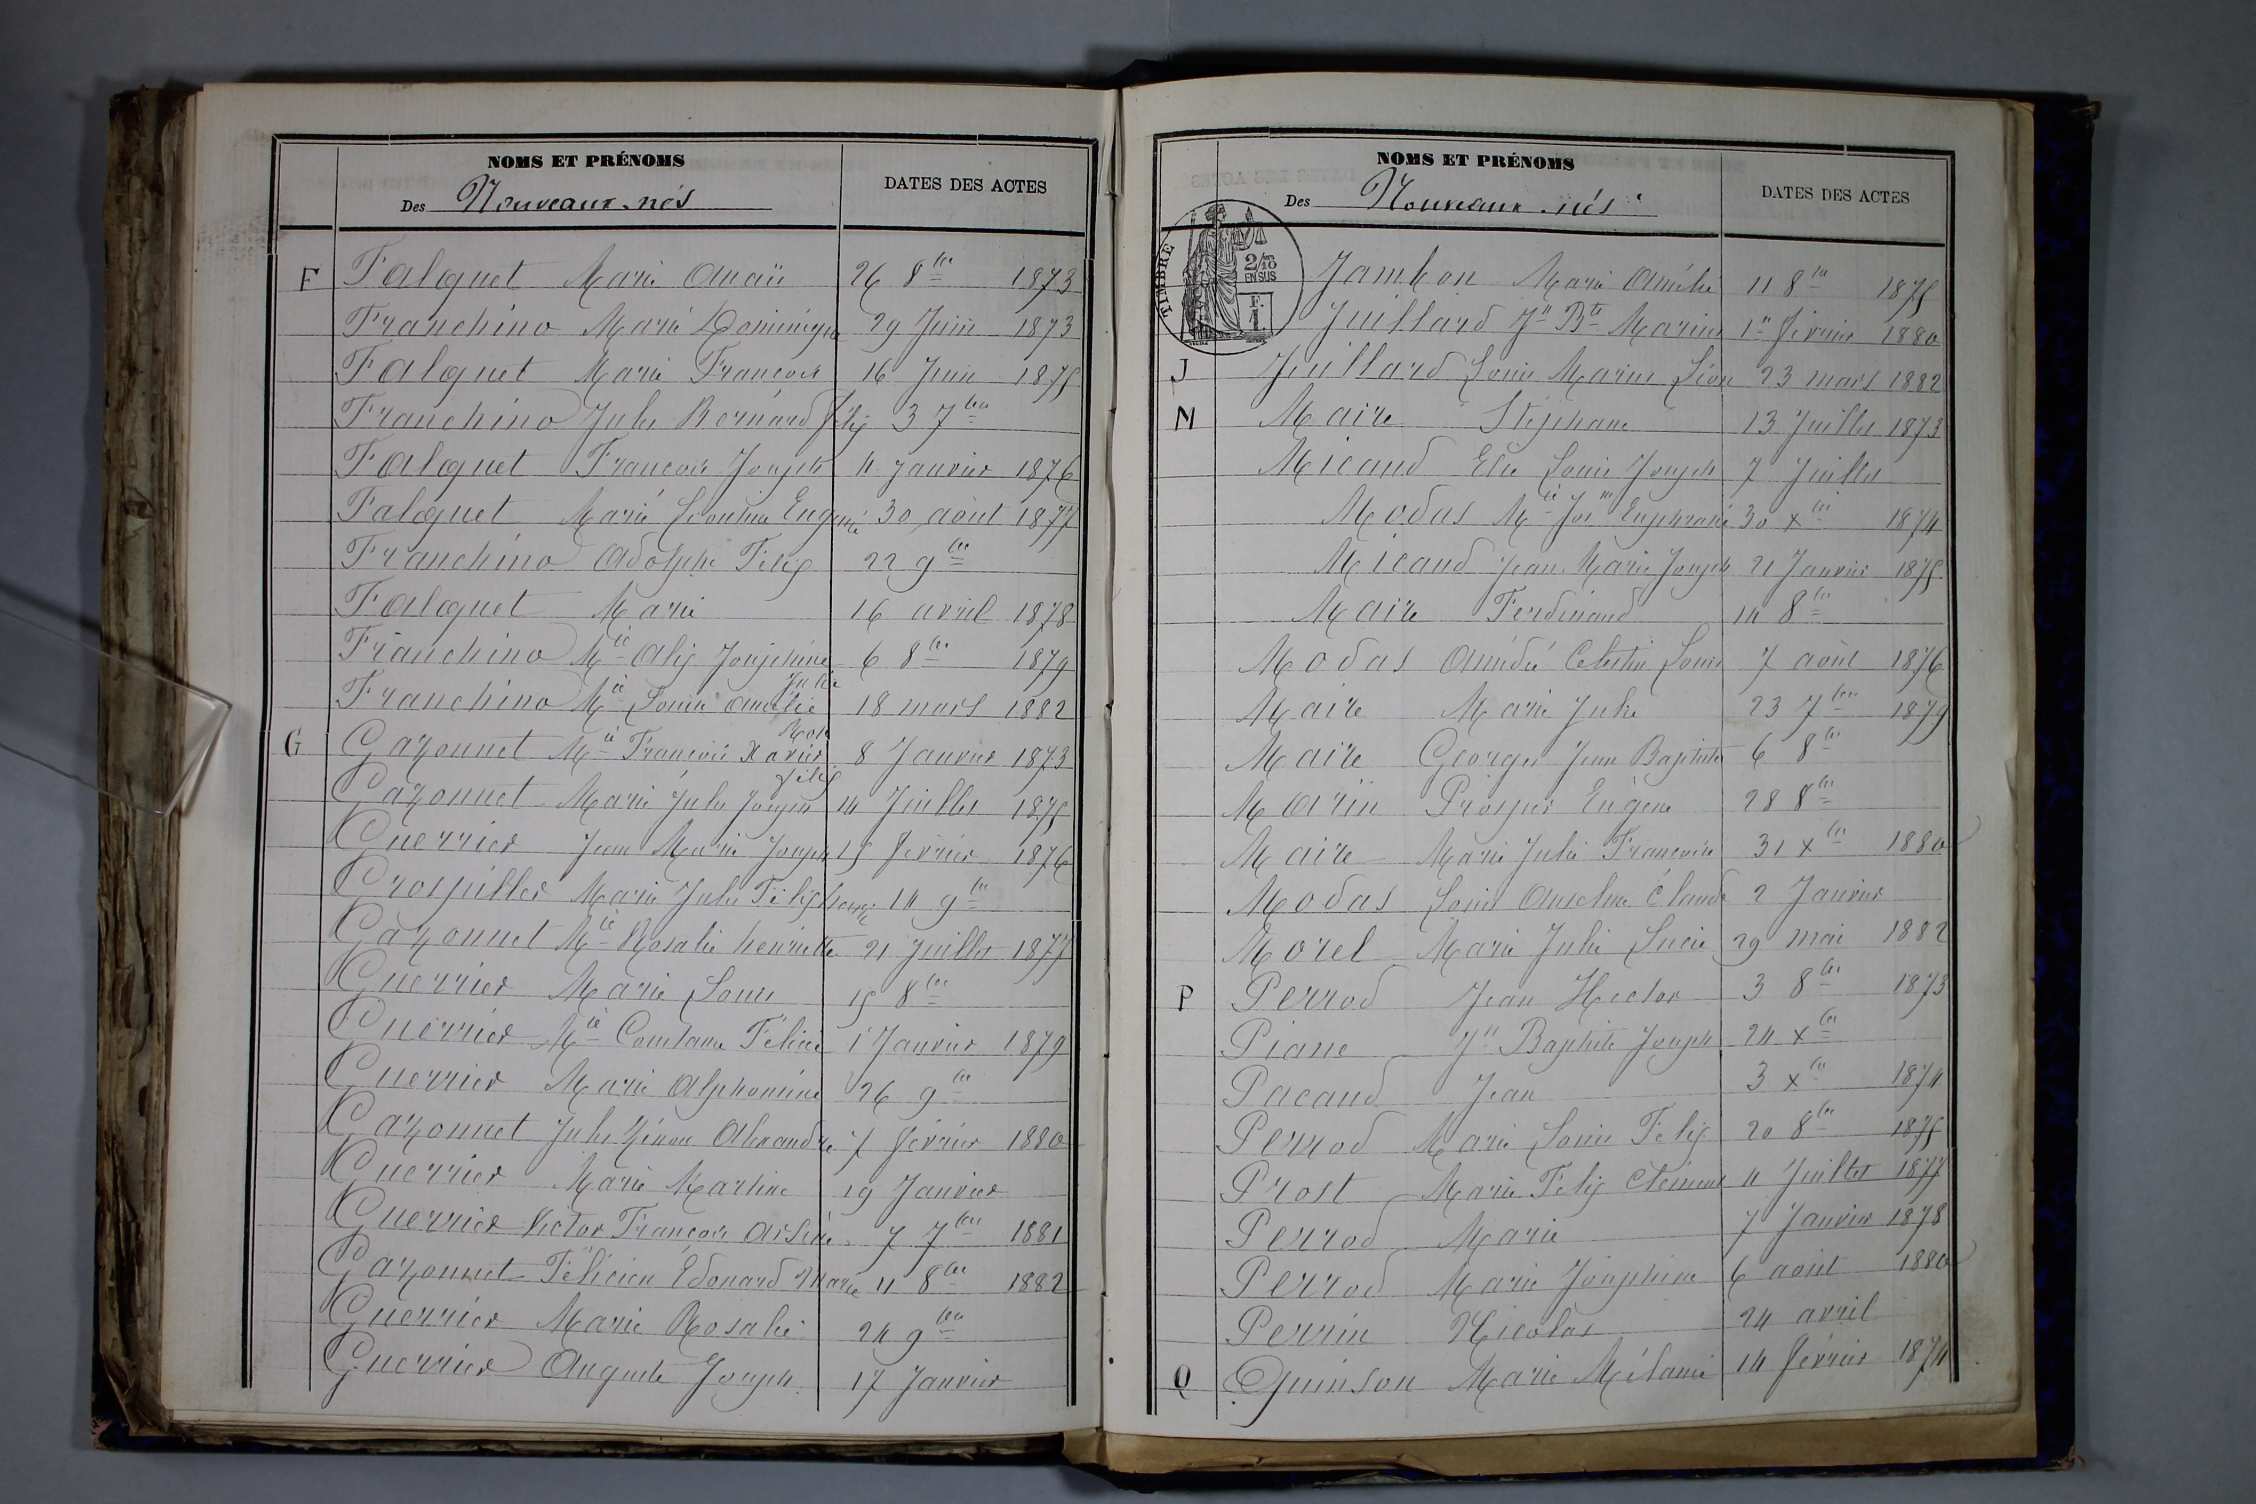 NOMS ET PRÉNOMS
Des Nouveaux-nés
DATES DES ACTES
F Falquet Marie Anaïs 26 8bre 1873
Franchino Marie Dominique 29 Juin 1873
Falquet Marie François 16 Juin 1875
Franchino Jules Bernard Félix 3 7bre
Falquet François Joseph 4 Janvier 1876
Falquet Marie Léontine Eugénie 30 août 1877
Franchino Adolphe Félix 22 9bre
Falquet Marie 16 avril 1878
Franchino Mie Alix Joséphine 6 8bre 1879
Julie
Franchino Mie Louise Amélie 18 mars 1882
G Gazonnet Mie François Xavier 8 Janvier 1873
Félix
Gazonnet Marie Jules Joseph 14 Juillet 1875
Guerrier Jean Marie Joseph 15 février 1876
Grospillier Marie Jules Félix 14 9bre
Gazonnet Mie Rosalie henriette 21 Juillet 1877
Guerrier Marie Louis 15 8bre
Guerrier Mie Constance Félicie 1 Janvier 1879
Guerrier Marie Alphonsine 26 9bre
Gazonnet Jules Zénon Alexandre 7 février 1880
Guerrier Marie Martine 19 Janvier
Guerrier Victor François Arsène 7 7bre 1881
Gazonnet Félicien Édouard Marie 11 8bre 1882
Guerrier Marie Rosalie 24 9bre
Guerrier Auguste Joseph 17 Janvier
NOMS ET PRÉNOMS
Des Nouveaux-nés
DATES DES ACTES
TIMBRE
2/10
EN SUS
F.
1.
Jambon Marie Amélie 11 8bre 1875
Juillard Jn Bte Marius 1er février 1880
J Juillard Louis Marius Léon 23 mars 1882
M Maire Stéphane 13 Juillet 1873
Micaud Elie Louis Joseph 7 Juillet
Modas Mie Jos Euphrasie 30 xbre 1874
Micaud Jean Marie Joseph 21 Janvier 1875
Maire Ferdinand 14 8bre
Modas Amédée Célestin Louis 7 août 1876
Maire Marie Julie 23 7bre 1879
Maire Georges Jean Baptiste 6 8bre
Marin Prosper Eugène 28 8bre
Maire Marie Julie Françoise 31 xbre 1880
Modas Louis Anselme Claude 2 Janvier
Morel Marie Julie Lucie 29 mai 1882
P Perrod Jean Hector 3 8bre 1873
Piane Jn Baptiste Joseph 24 xbre
Pacaud Jean 3 xbre 1874
Perrod Marie Louis Félix 20 8bre 1875
Prost Marie Félix Clément 11 Juillet 1877
Perrod Marie 7 Janvier 1878
Perrod Marie Joséphine 6 août 1880
Perrin Nicolas 24 avril
Q Quinson Marie Mélanie 14 février 1874